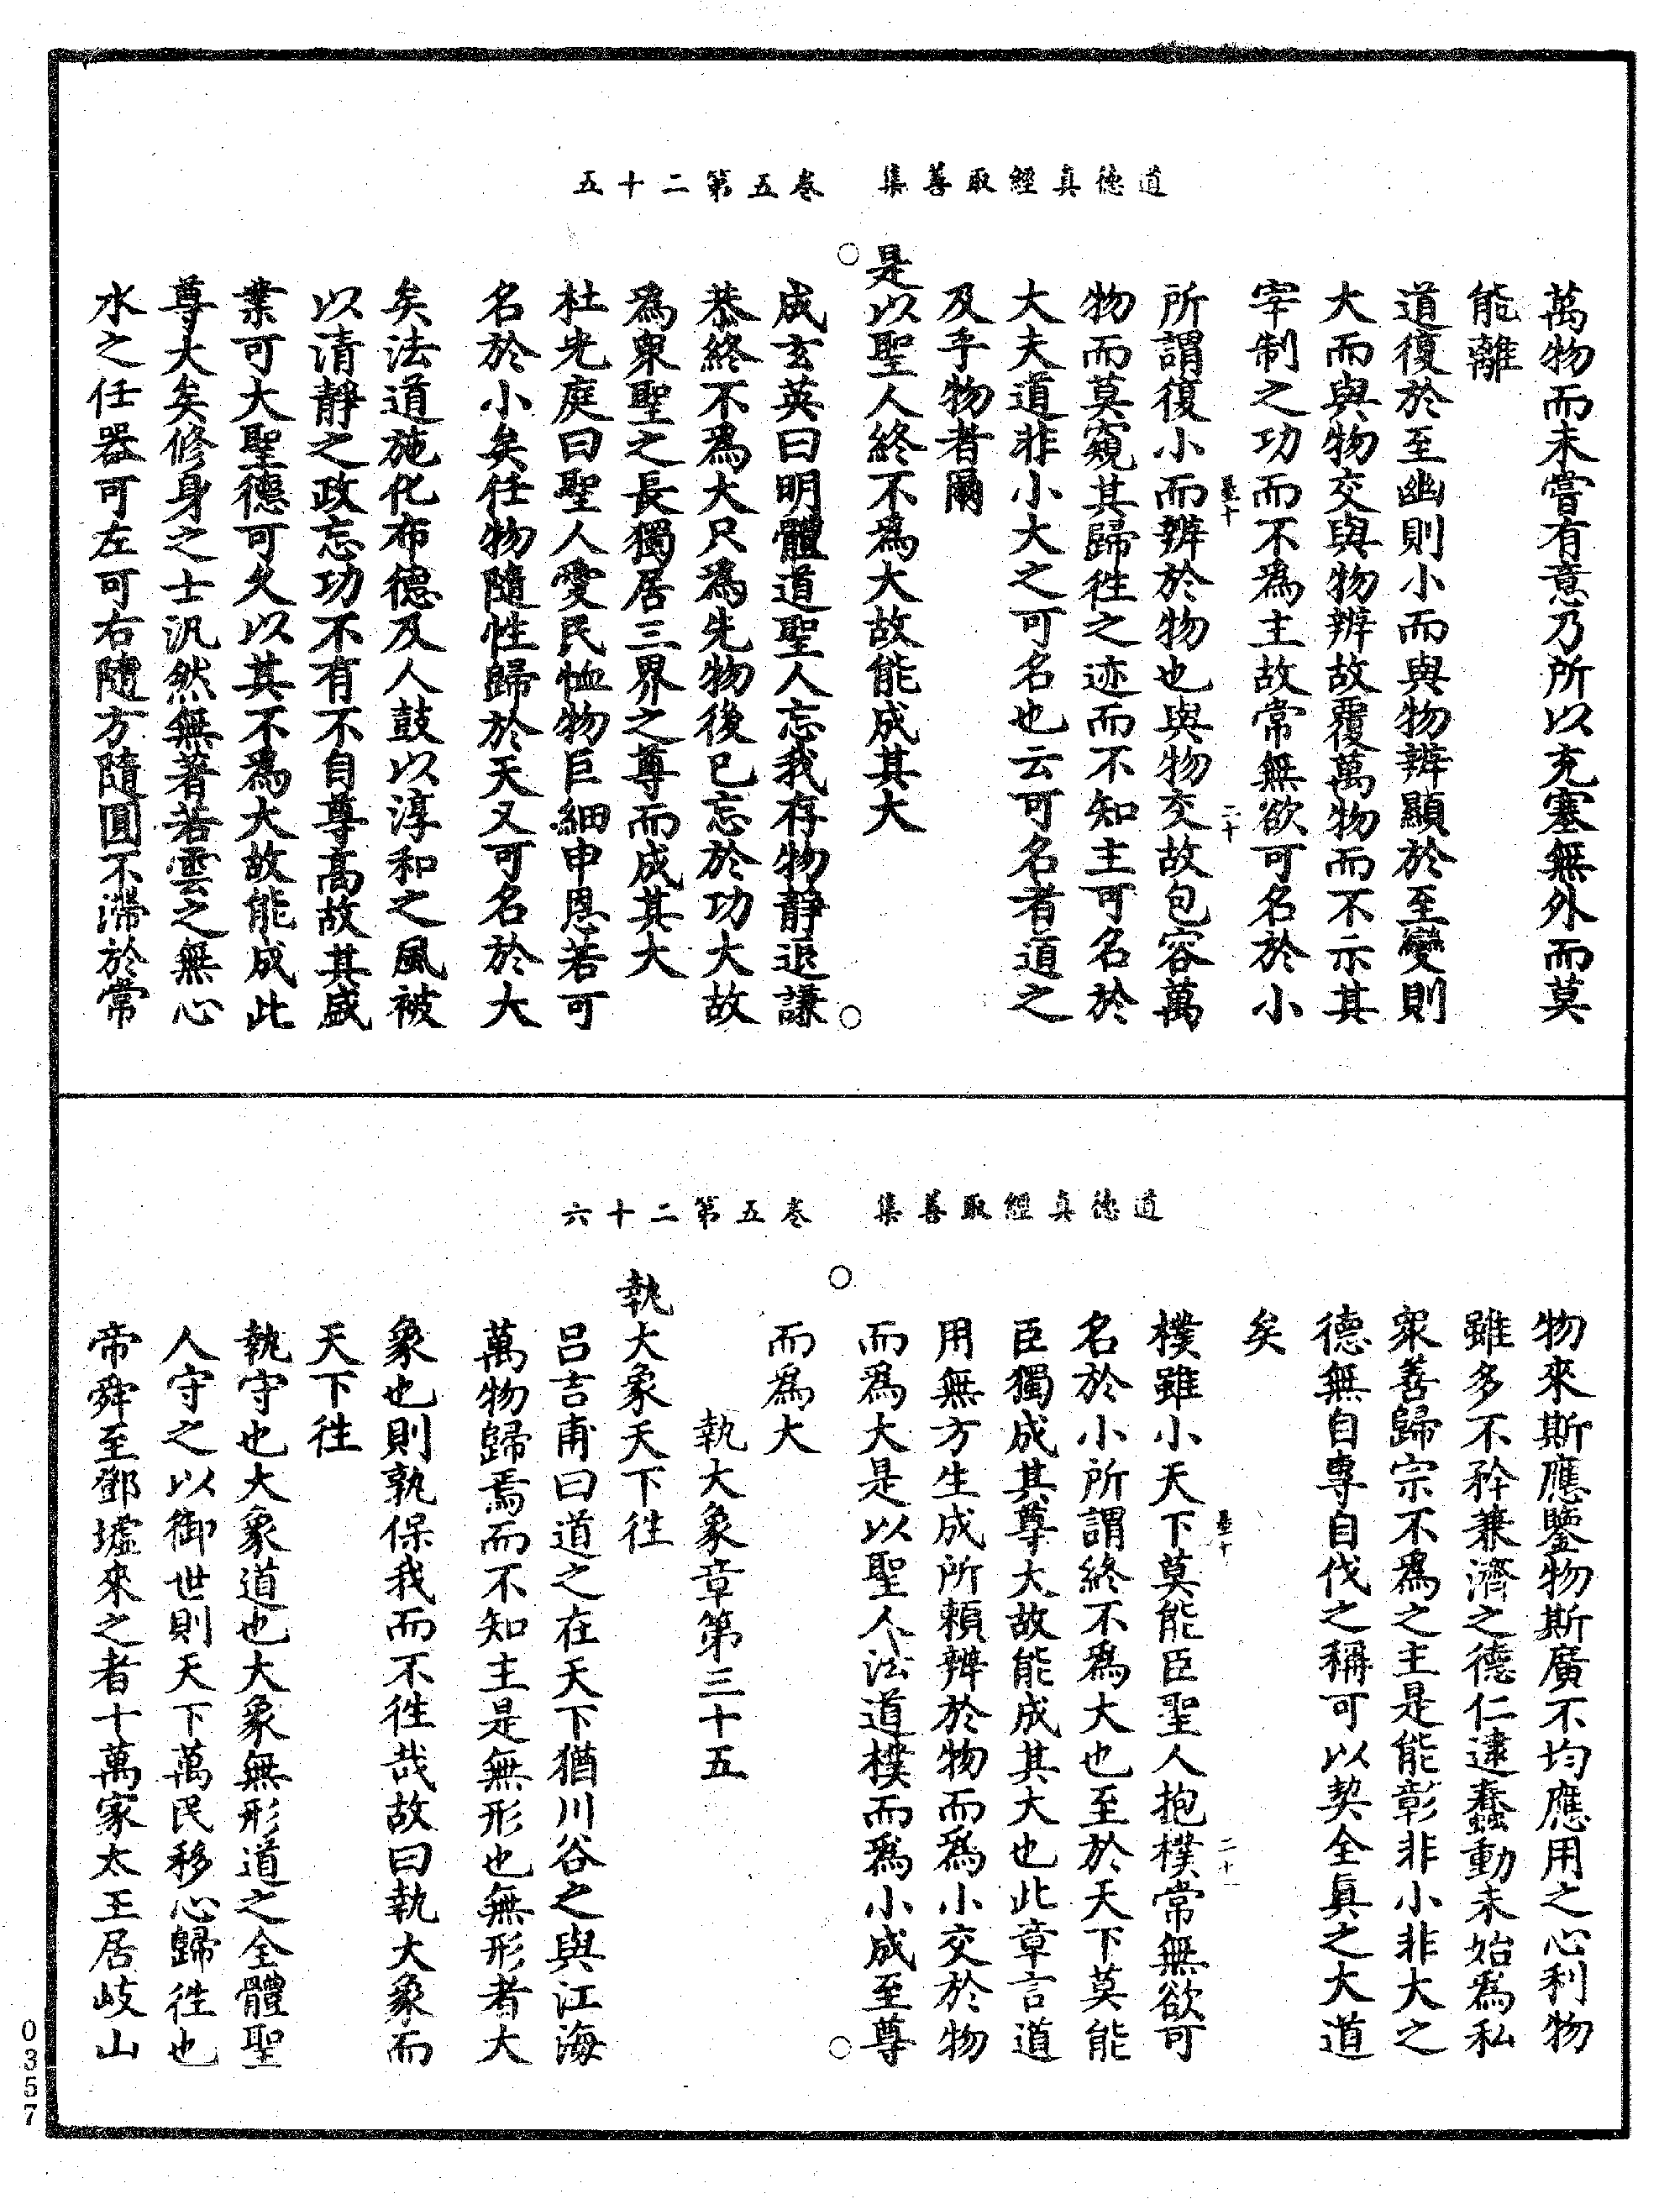 道德真經取善集　卷五第二十五
萬物而未嘗有意乃所以充塞無外而莫
能離
道復於至幽則小而與物辨顯於至變則
大而與物交與物辨故覆萬物而不示其
宰制之功而不為主故常無欲可名於小
所謂復小而辨於物也與物交故包容萬
物而莫窺其歸往之迹而不知主可名於
大夫道非小大之可名也云可名者道之
及乎物者爾
是以聖人終不為大故能成其大
成玄英曰明體道聖人忘我存物靜退謙
恭終不為大只為先物後己忘於功大故
為衆聖之長獨居三界之尊而成其大
杜光庭曰聖人愛民恤物巨細申恩若可
名於小矣任物隨性歸於天又可名於大
矣法道施化布德及人鼓以淳和之風被
以清靜之政忘功不有不自尊高故其盛
業可大聖德可久以其不為大故能成此
尊大矣修身之士汎然無著若雲之無心
水之任器可左可右隨方隨圓不滯於常
道德真經取善集　卷五第二十六
物來斯應鑒物斯廣不均應用之心利物
雖多不矜兼濟之德仁逮蠢動未始為私
衆善歸宗不為之主是能彰非小非大之
德無自專自伐之稱可以契全真之大道
矣
樸雖小天下莫能臣聖人抱樸常無欲可
名於小所謂終不為大也至於天下莫能
臣獨成其尊大故能成其大也此章言道
用無方生成所賴辨於物而為小交於物
而為大是以聖人法道樸而為小成至尊
而為大
執大象章第三十五
執大象天下往
呂吉甫曰道之在天下猶川谷之與江海
萬物歸焉而不知主是無形也無形者大
象也則孰保我而不往哉故曰執大象而
天下往
執守也大象道也大象無形道之全體聖
人守之以御世則天下萬民移心歸往也
帝舜至鄧墟來之者十萬家太王居岐山
0357